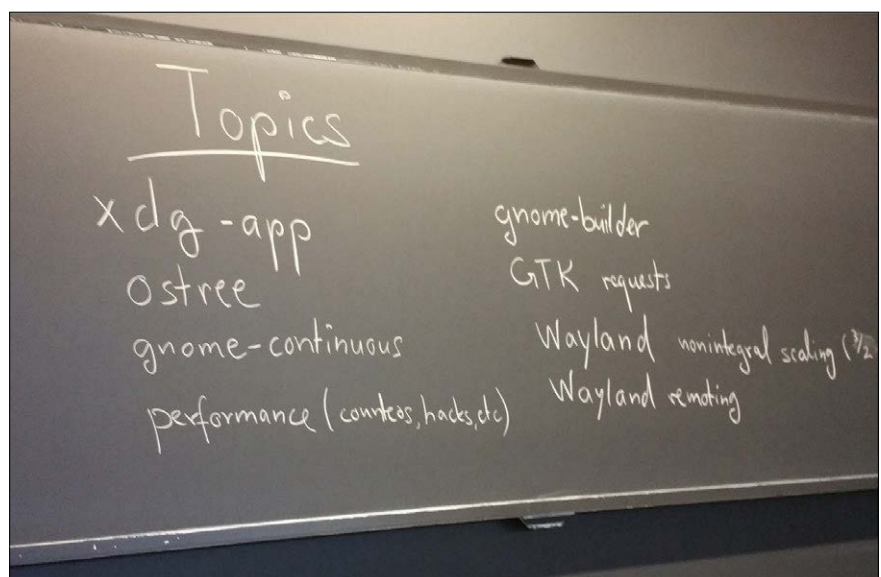 Topics
xdg-app
ostree
gnome-continuous
performance (counteos, hacks, etc)
gnome-builder
GTK requests
Wayland nonintegral scaling (3/2
Wayland remoting